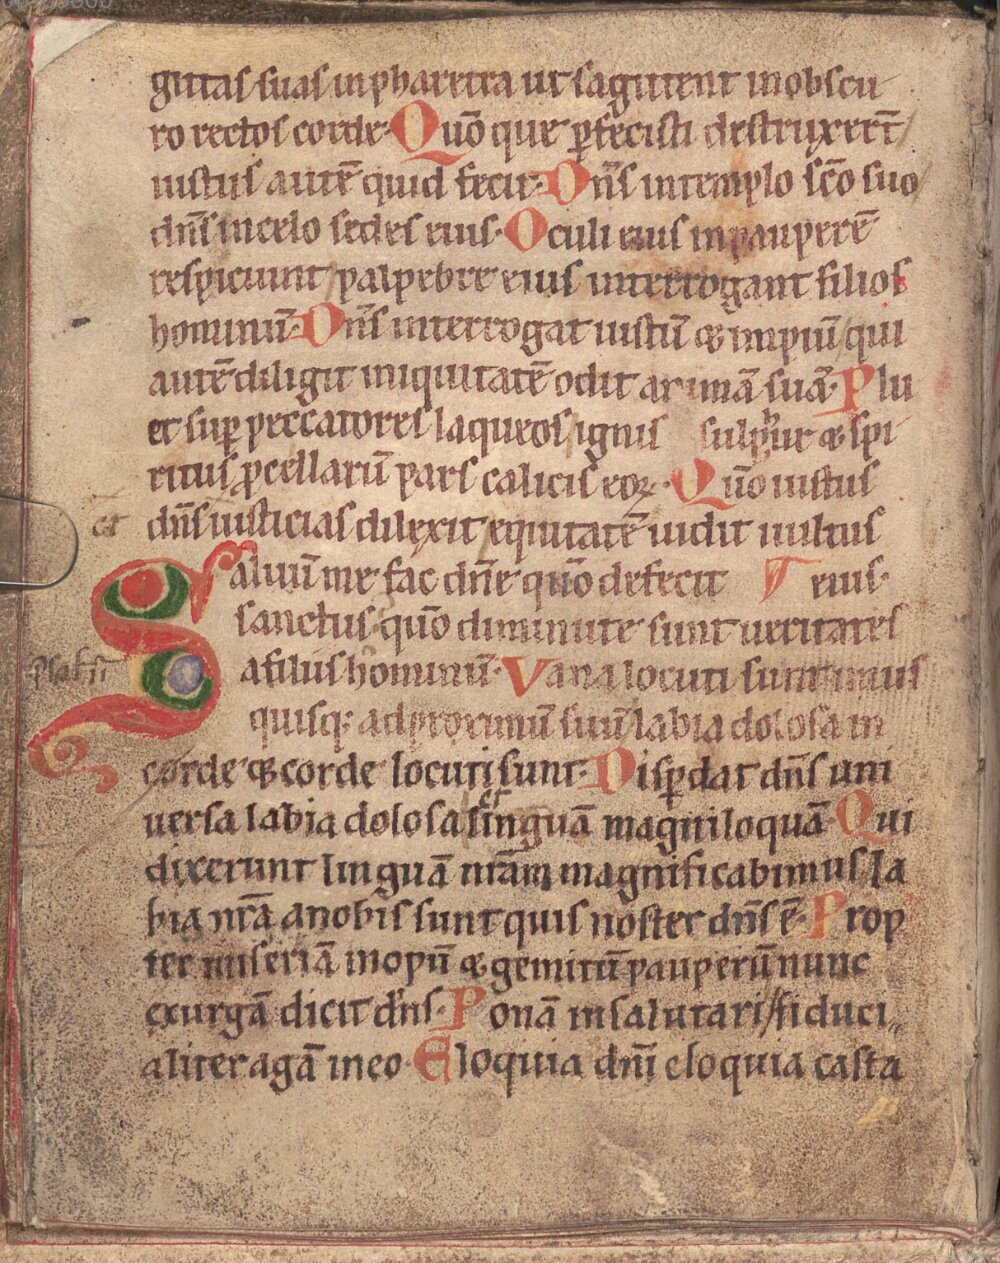 gittas suas in pharetra ut sagittent in obscu
ro rectos corde· Quō que ꝑfecisti destruxer̄t
iustus autē quid fecit· Dn̄s in templo sc̄o suo
dn̄s in celo sedes eius· Oculi eius in pauperē
respiciunt palpebre eius interrogant filios
hominū· Dn̄s interrogat iustū & impiū qui
autē diligit iniquitatē odit animā suā· Plu
et suꝑ peccatores laqueos ignis sulphur & spi
ritus ꝓcellarū pars calicis eoꝝ· Quō iustus
et dn̄s iusticias dilexit equitatē uidit uultus
Saluū me fac dn̄e quō defecit eius·
sanctus· quō diminute sunt ueritates
psalm̄ a filiis hominū· Vana locuti sunt unus
quisq; ad proximū suū labia dolosa in
corde & corde locuti sunt· Disꝑdat dn̄s uni
uersa labia dolosa et linguā magniloquā· Qui
dixerunt linguā nr̄am magnificabimus la
bia nr̄a a nobis sunt quis noster dn̄s ē· Prop
ter miseriā inopū & gemitū pauperū nunc
exurgā dicit dn̄s· Ponā in salutari fiduci
aliter agā in eo· Eloquia dn̄i eloquia casta